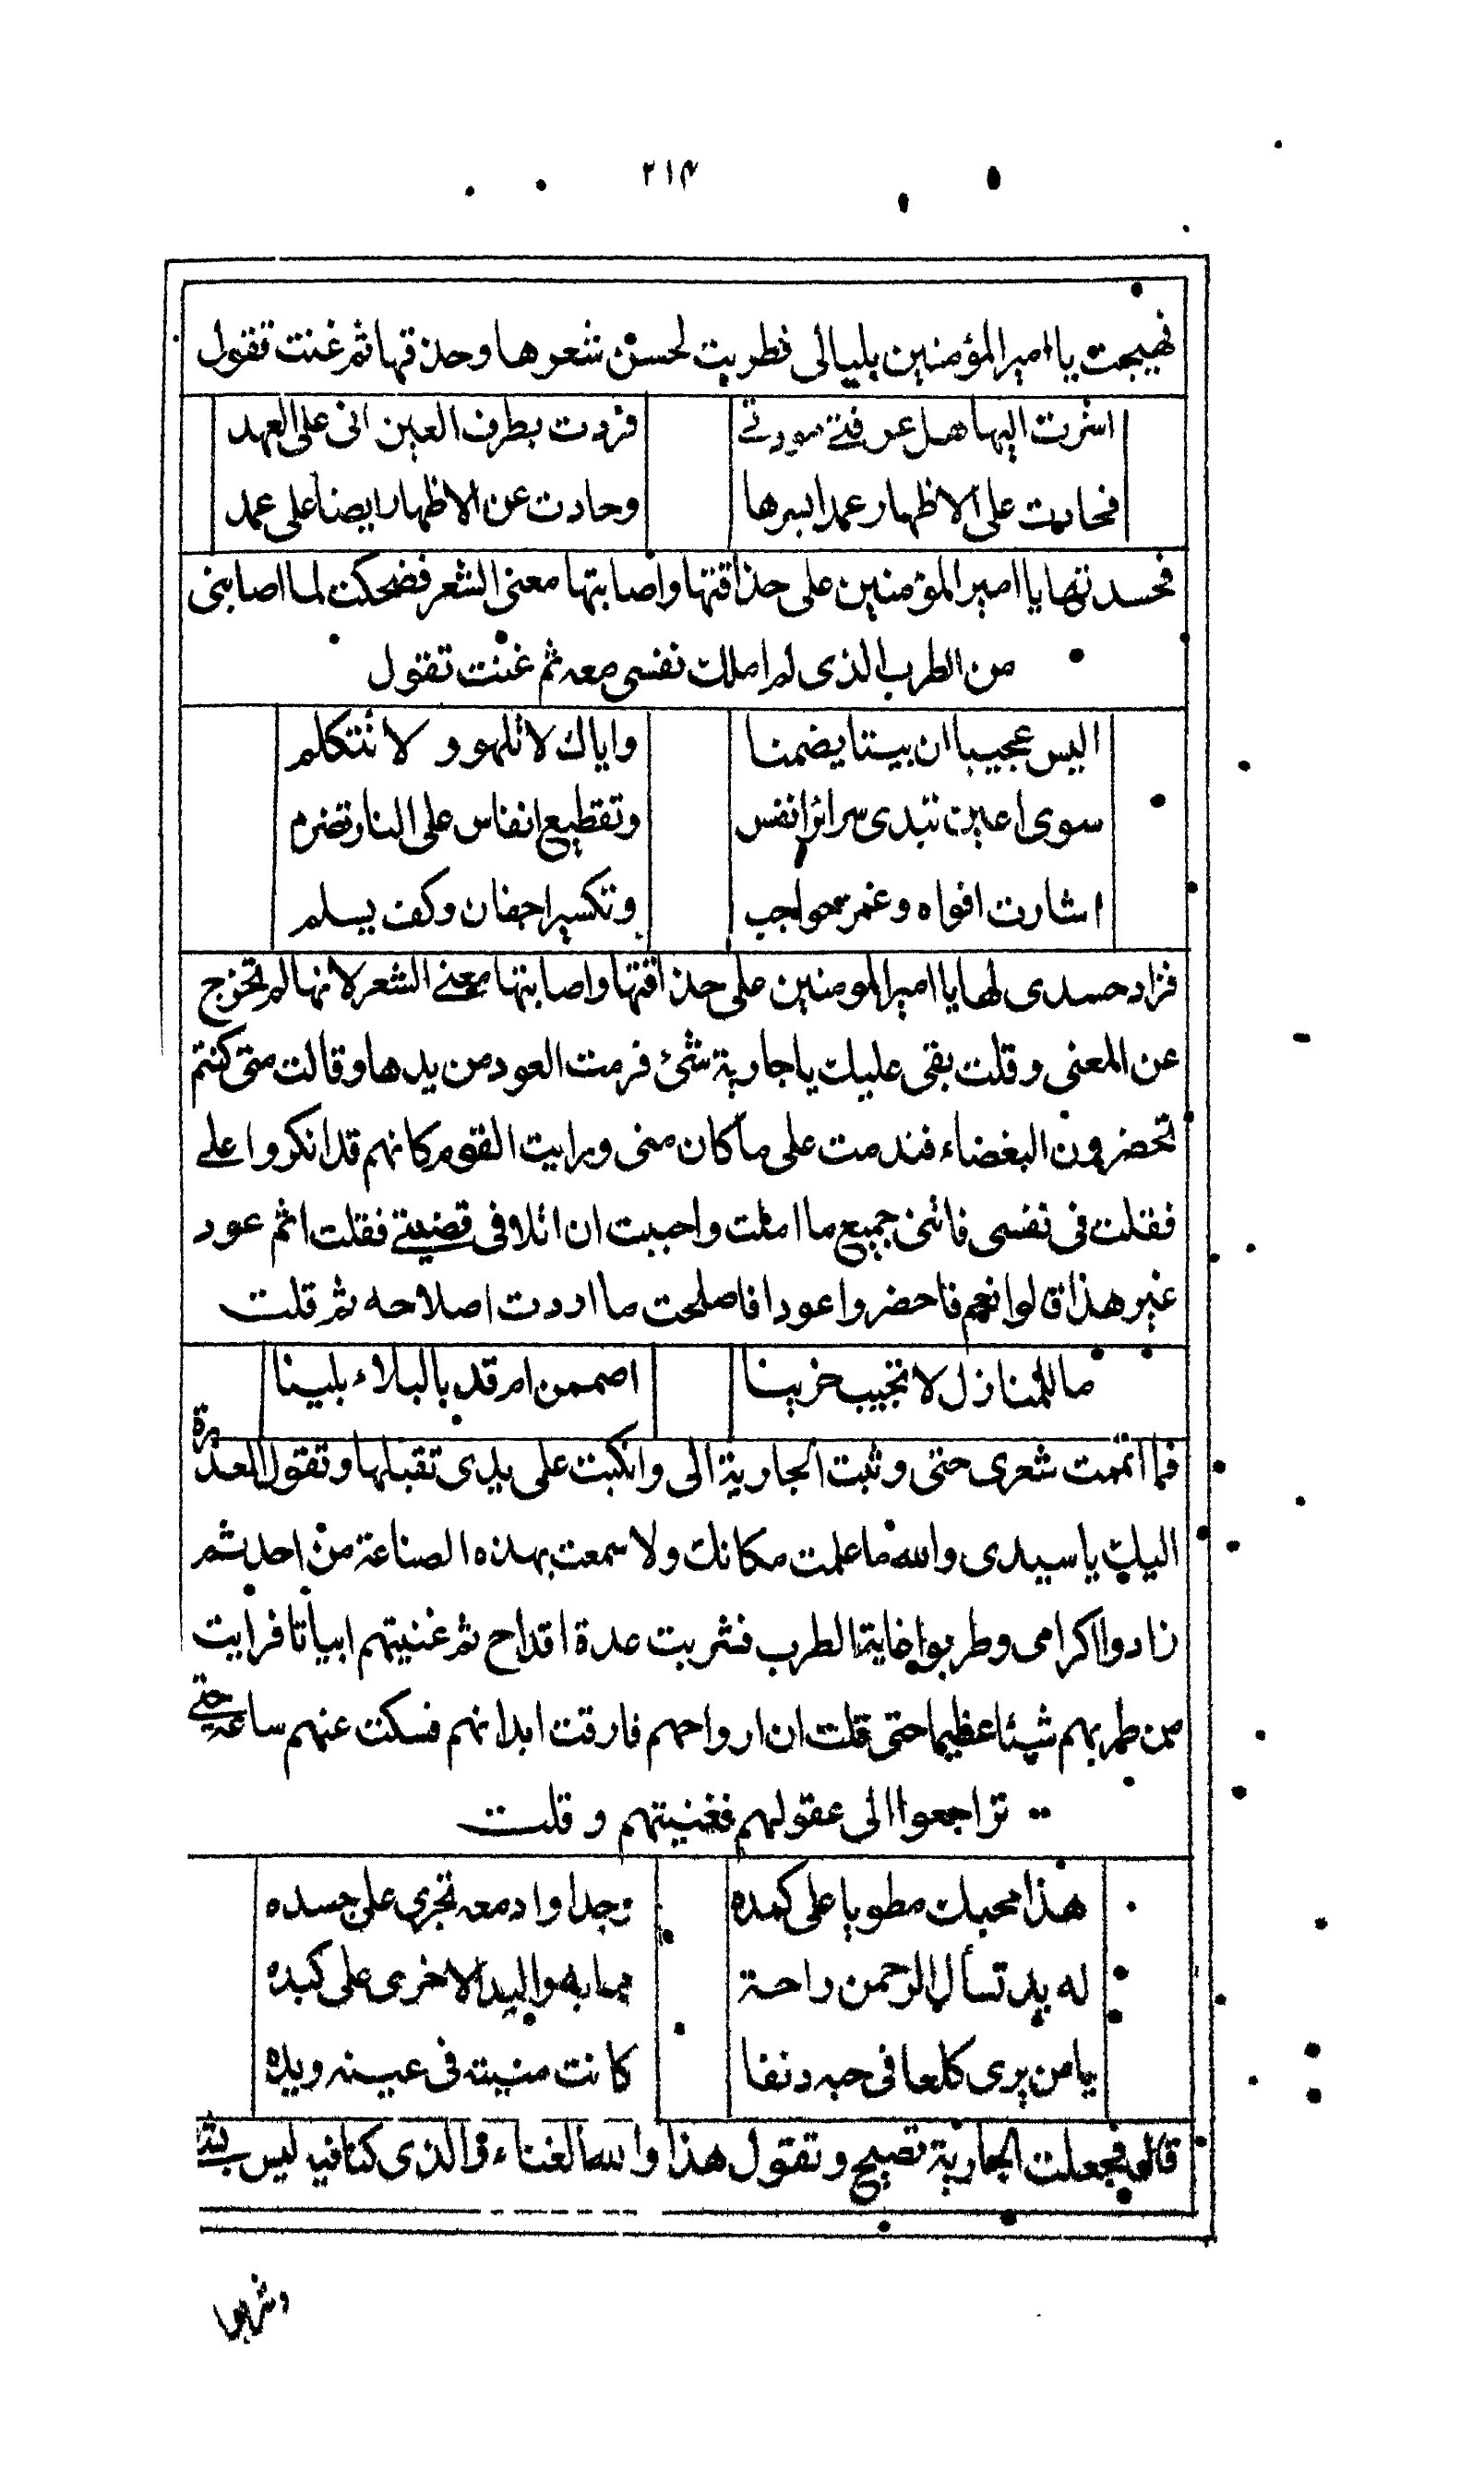 ٢١٤
فهيجت يا امير المؤمنين بليالى فطربت لحسن شعرها وحذقها ثم غنت تقول
اشرت اليها هل عرفتے مودتے فردت بطرف العين انى على العهد
فحادت على الاظهار عمدا بسرها وحادت عن الاظهار ايضا على عمد
فحسدتها يا امير المؤمنين على حذاقتها واصابتها معنى الشعر فضحكت لما اصابنى
من الطرب الذى لم املك نفسى معه ثم غنت تقول
اليس عجيبا ان بيتا يضمنا واياك لا نلهو و لا نتكلم
سوى اعين تبدى سرائر انفس وتقطيع انفاس على النار تضرم
اشارت افواه وغمز حواجب وتكسير اجفان وكف يسلم
فزاد حسدى لها يا امير المومنين على حذاقتها واصابتها معنے الشعر لانها لم تخرج
عن المعنى وقلت بقى عليك يا جارية شئ فرمت العود من يدها وقالت متى كنتم
تحضرون البغضاء فندمت على ما كان منى ورايت القوم كانهم قد انكروا علے
فقلت فى نفسى فاتنى جميع ما املت واحببت ان اتلافى قضيتے فقلت اثم عود
غير هذا قالوا نعم فاحضروا عودا فاصلحت ما اردت اصلاحه ثم قلت
ما للمنازل لا تجيب حزينا اصممن ام قد بالبلاء بلينا
فما اتممت شعرى حتى وثبت الجارية الى وانكبت على يدى تقبلها وتقول المعذرة
اليك يا سيدى والله ما علمت مكانك ولا سمعت بهذه الصناعة من احد ثم
زادوا اكرامى وطربوا غاية الطرب فشربت عدة اقداح ثم غنيتهم ابياتا فرايت
من طربهم شيئا عظيما حتى قلت ان ارواحهم فارقت ابدانهم فسكت عنهم ساعة حتے
تراجعوا الى عقولهم فغنيتهم و قلت
هذا محبك مطويا على كمده وجدا وادمعه تجرى على جسده
له يد تسأل الرحمن راحة مما به واليد الاخرى على كبده
يا من يرى كلفا فى حبه دنفا كانت منيته فى عينه ويده
قال فجعلت الجارية تصيح وتقول هذا والله الغناء والذى كنا فيه ليس بشئ
وشربوا